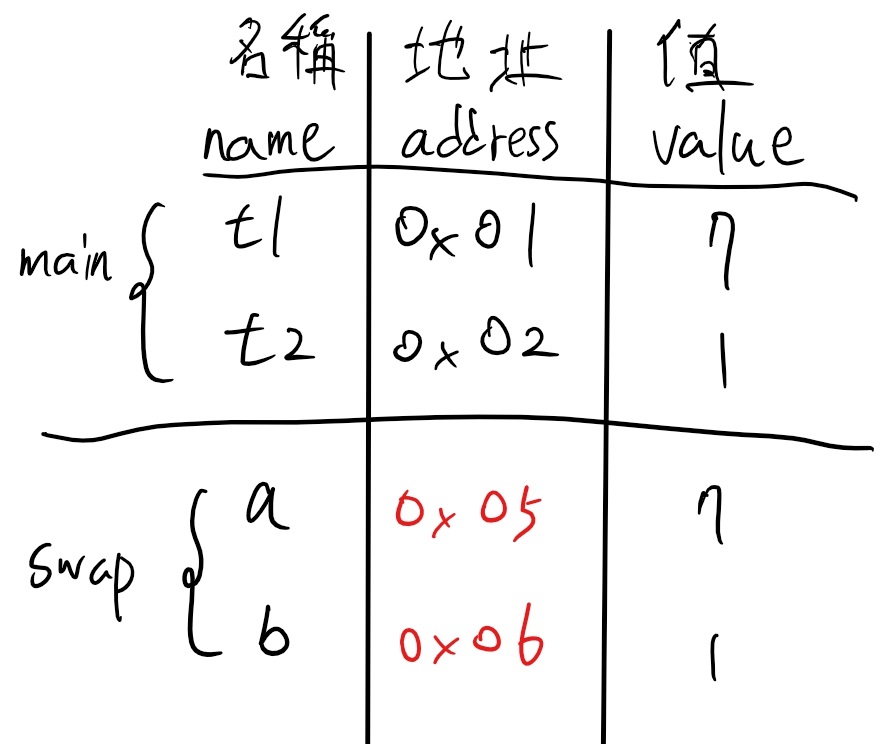 名稱 地址 值
name address value
main t1 0x01 7
t2 0x02 1
swap a 0x05 7
b 0x06 1